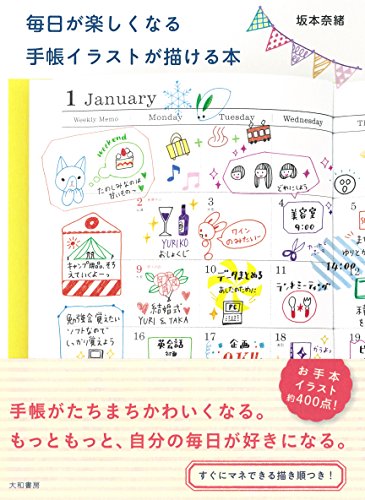 毎日が楽しくなる
手帳イラストが描ける本
坂本奈緒
1 January
Weekly Memo
Monday
Tuesday
Wednesday
Th
weekend
たのしみなのは
甘いもの〜
どれにしよう
2
3
4
YURIKO
おしょくじ
ワイン
のみたい〜
美容室
9:00
キャンプ用品、そろ
えていくよーっ
9
10
11
結婚式
YURI & TAKA
データまとめる
あしたのために
PC
ランチミーティング
14:00
勉強会 覚えたい
ソフトなので
しっかり覚えよう
16
17
18
19
英会話
企画
お手本
イラスト
約400点!
手帳がたちまちかわいくなる。
もっともっと、自分の毎日が好きになる。
すぐにマネできる描き順つき!
大和書房